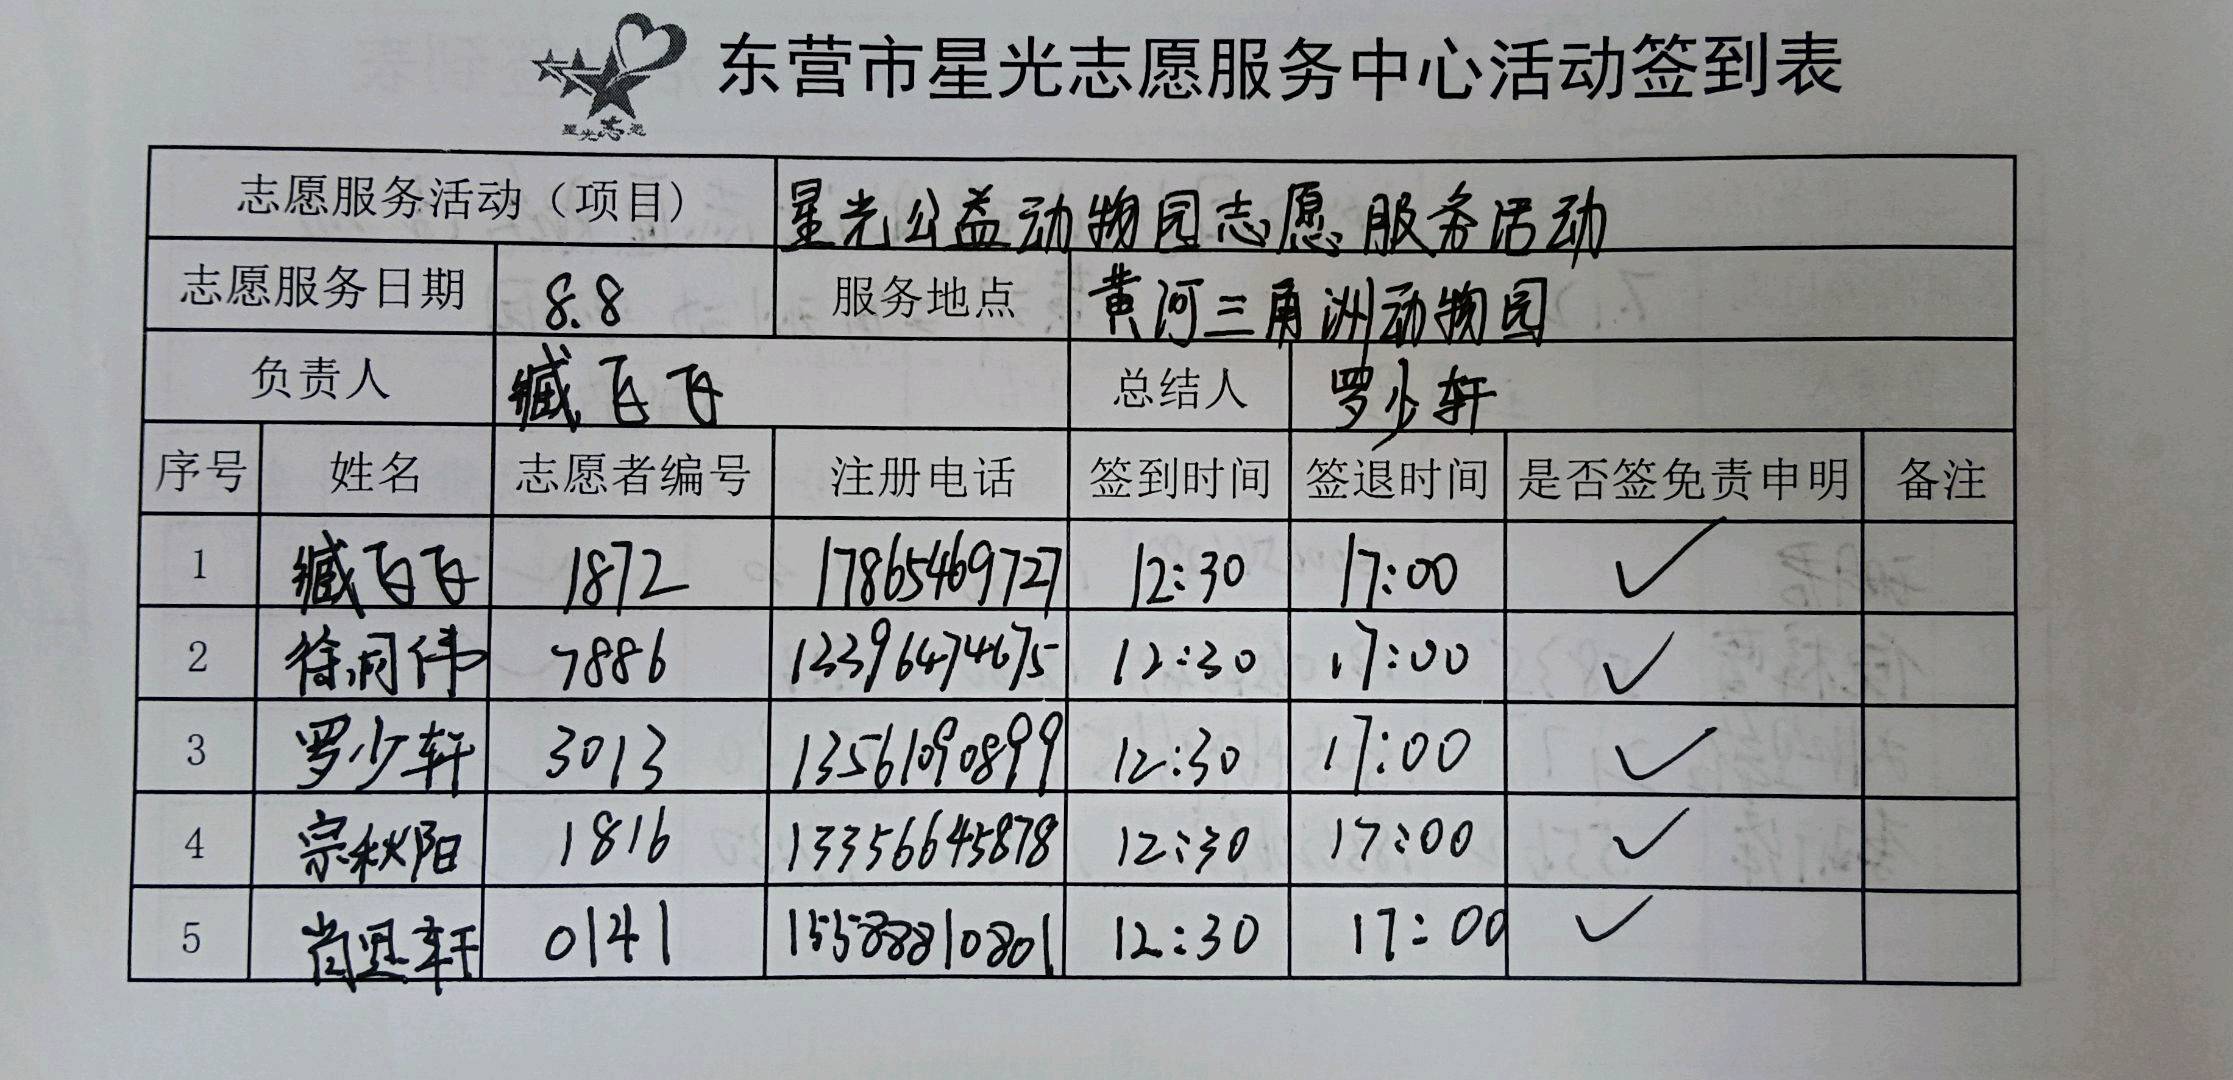 东营市星光志愿服务中心活动签到表
星光志愿
志愿服务活动（项目） 星光公益动物园志愿服务活动
志愿服务日期 8.8 服务地点 黄河三角洲动物园
负责人 臧飞飞 总结人 罗少轩
序号 姓名 志愿者编号 注册电话 签到时间 签退时间 是否签免责申明 备注
1 臧飞飞 1872 17865469727 12:30 17:00 ✓
2 徐同伟 7886 13396474675 12:30 17:00 ✓
3 罗少轩 3013 13561090899 12:30 17:00 ✓
4 宗秋阳 1816 13356645878 12:30 17:00 ✓
5 轩 0141 15588810801 12:30 17:00 ✓